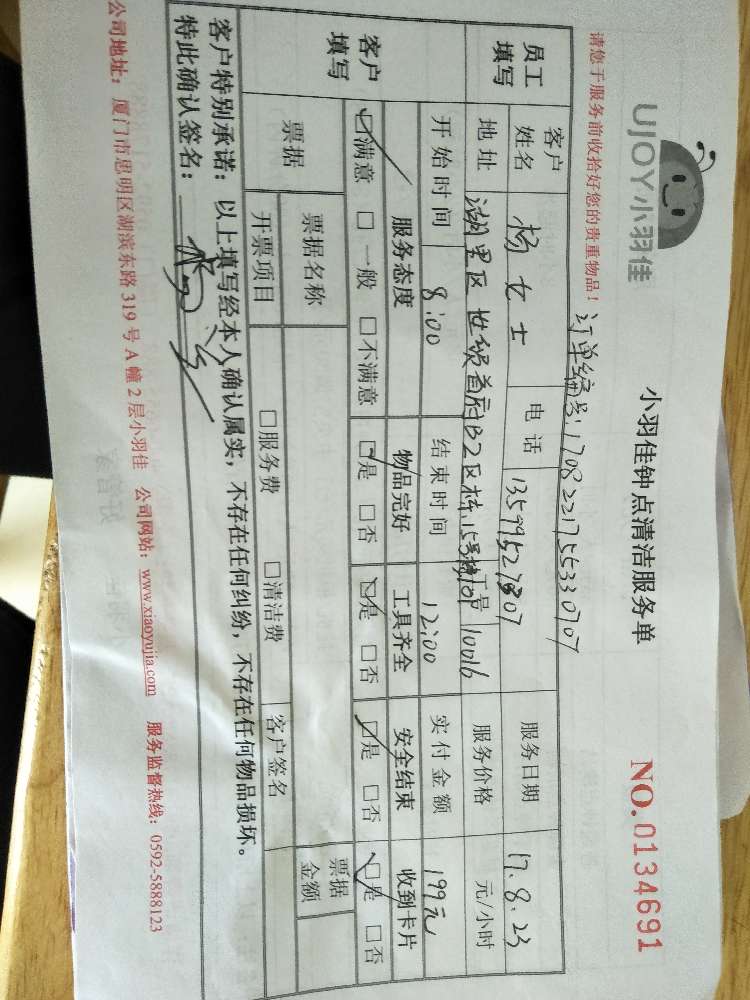 UJOY小羽佳
小羽佳钟点清洁服务单
NO.0134691
请您于服务前收拾好您的贵重物品！
订单编号:1708221755330707
员工填写
客户姓名 杨女士 电话 13599527807 服务日期 17.8.23
地址 湖里区 世纪首府B2区 15号 工号 10016 服务价格 元/小时
开始时间 8:00 结束时间 12:00 实付金额 199元
客户填写
服务态度 物品完好 工具齐全 安全结束 收到卡片
☑满意 □一般 □不满意 ☑是 □否 ☑是 □否 ☑是 □否 ☑是 □否
票据 票据名称 票据金额
开票项目 □服务费 □清洁费 客户签名
客户特别承诺：以上填写经本人确认属实，不存在任何纠纷，不存在任何物品损坏。
特此确认签名：
公司地址：厦门市思明区湖滨东路319号A幢2层小羽佳 公司网站：www.xiaoyujia.com 服务监督热线：0592-5888123